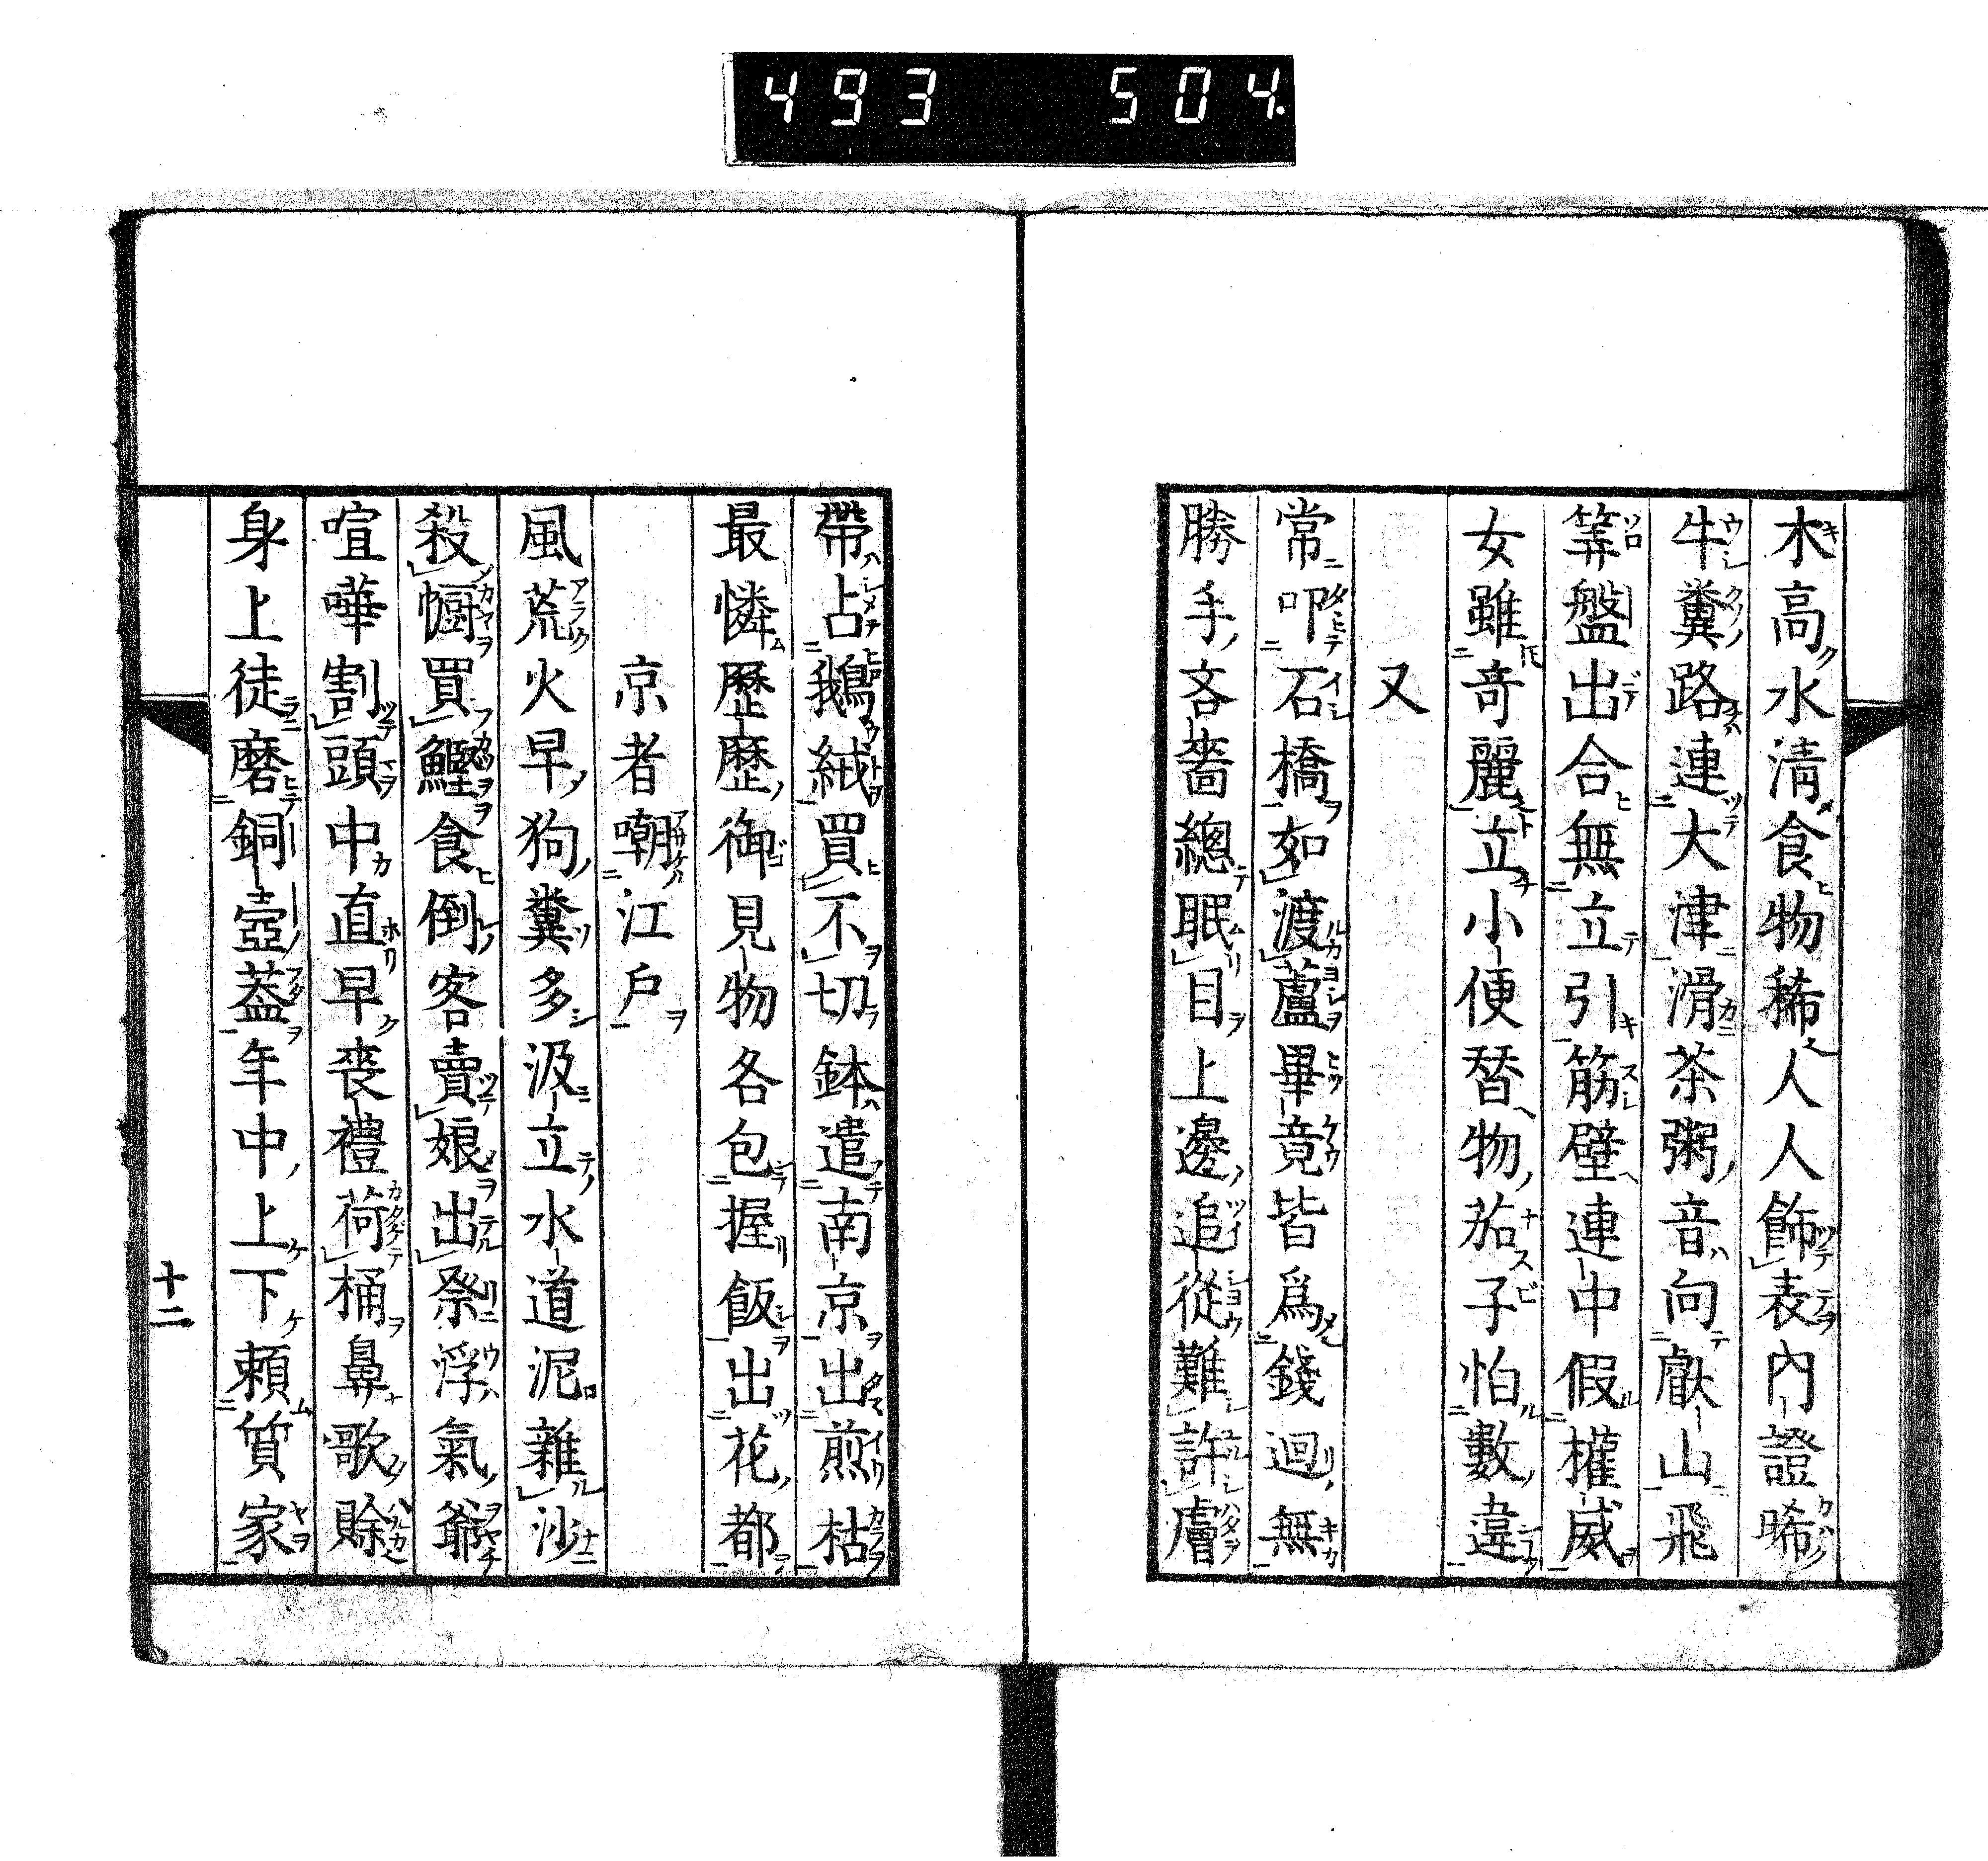 493 504.
木高水淸食物稀人人飾表內證晞
牛糞路連大津滑茶粥音向獻山飛
筭盤出合無立引筋壁連中假權威
女雖竒麗立小便替物茄子怕數違
又
常叩石橋如渡蘆畢竟皆爲錢迴無
勝手吝嗇總眠目上邊追從難許膚
帶占鵝絨買不切鉢遣南京出煎枯
最憐歷歷御見物各包握飯出花都
京者嘲江戶
風荒火早狗糞多汲立水道泥雜沙
殺幮買鰹食倒客賣娘出祭浮氣爺
喧嘩割頭中直早喪禮荷桶鼻歌賒
身上徒磨銅壺葢年中上下賴質家
十二